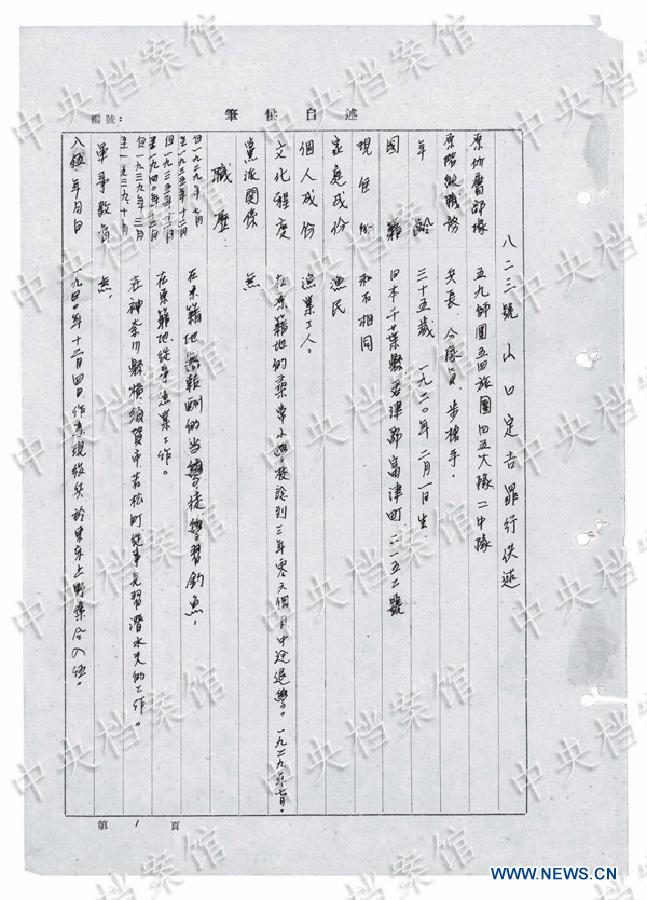 編號：
筆供自述
八二三號 山口定吉罪行供述
原所屬部隊 五九師團五四旅團四五大隊二中隊
原階級職務 兵長 分隊員。步槍手．
年齡 三十五歲 一九二〇年二月一日生．
國籍 日本千葉縣君津郡富津町二一五二號
現住所 和右相同
家庭成份 漁民
個人成份 漁業工人。
文化程度 在原籍地的尋常小學校念到三年零六個月中途退學。一九二九年七月。
黨派關係 無
職歷．
但一九二九年七月 至一九三五年十二月 在原籍地無報酬的当學徒學習釣魚，
但一九三五年十二月 至一九四〇年 在原籍地從事漁業工作。
但一九三九年三月 至一九 九年十月 在神奈川縣橫須賀市若松町從事見習潛水夫的工作。
軍事教育 無，
入伍年月日 一九四〇年十二月四日作為現役兵於東京上野集合入伍。
第1頁
中央档案馆
新华网
WWW.NEWS.CN